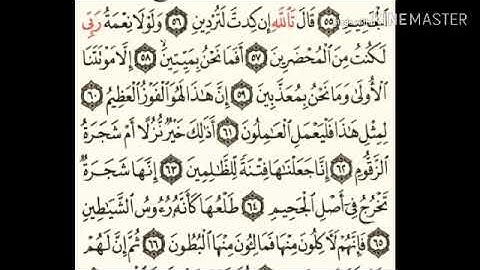 KINEMASTER
ٱلْجَحِيمِ ٥٥ قَالَ تَٱللَّهِ إِن كِدتَّ لَتُرْدِينِ ٥٦ وَلَوْلَا نِعْمَةُ رَبِّى
لَكُنتُ مِنَ ٱلْمُحْضَرِينَ ٥٧ أَفَمَا نَحْنُ بِمَيِّتِينَ ٥٨ إِلَّا مَوْتَتَنَا
ٱلْأُولَىٰ وَمَا نَحْنُ بِمُعَذَّبِينَ ٥٩ إِنَّ هَٰذَا لَهُوَ ٱلْفَوْزُ ٱلْعَظِيمُ ٦٠
لِمِثْلِ هَٰذَا فَلْيَعْمَلِ ٱلْعَٰمِلُونَ ٦١ أَذَٰلِكَ خَيْرٌ نُّزُلًا أَمْ شَجَرَةُ
ٱلزَّقُّومِ ٦٢ إِنَّا جَعَلْنَٰهَا فِتْنَةً لِّلظَّٰلِمِينَ ٦٣ إِنَّهَا شَجَرَةٌ
تَخْرُجُ فِىٓ أَصْلِ ٱلْجَحِيمِ ٦٤ طَلْعُهَا كَأَنَّهُۥ رُءُوسُ ٱلشَّيَٰطِينِ
٦٥ فَإِنَّهُمْ لَءَاكِلُونَ مِنْهَا فَمَالِـُٔونَ مِنْهَا ٱلْبُطُونَ ٦٦ ثُمَّ إِنَّ لَهُمْ